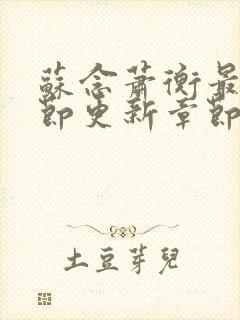 蘇念蕭衡最
節更新章節
土豆芽兒